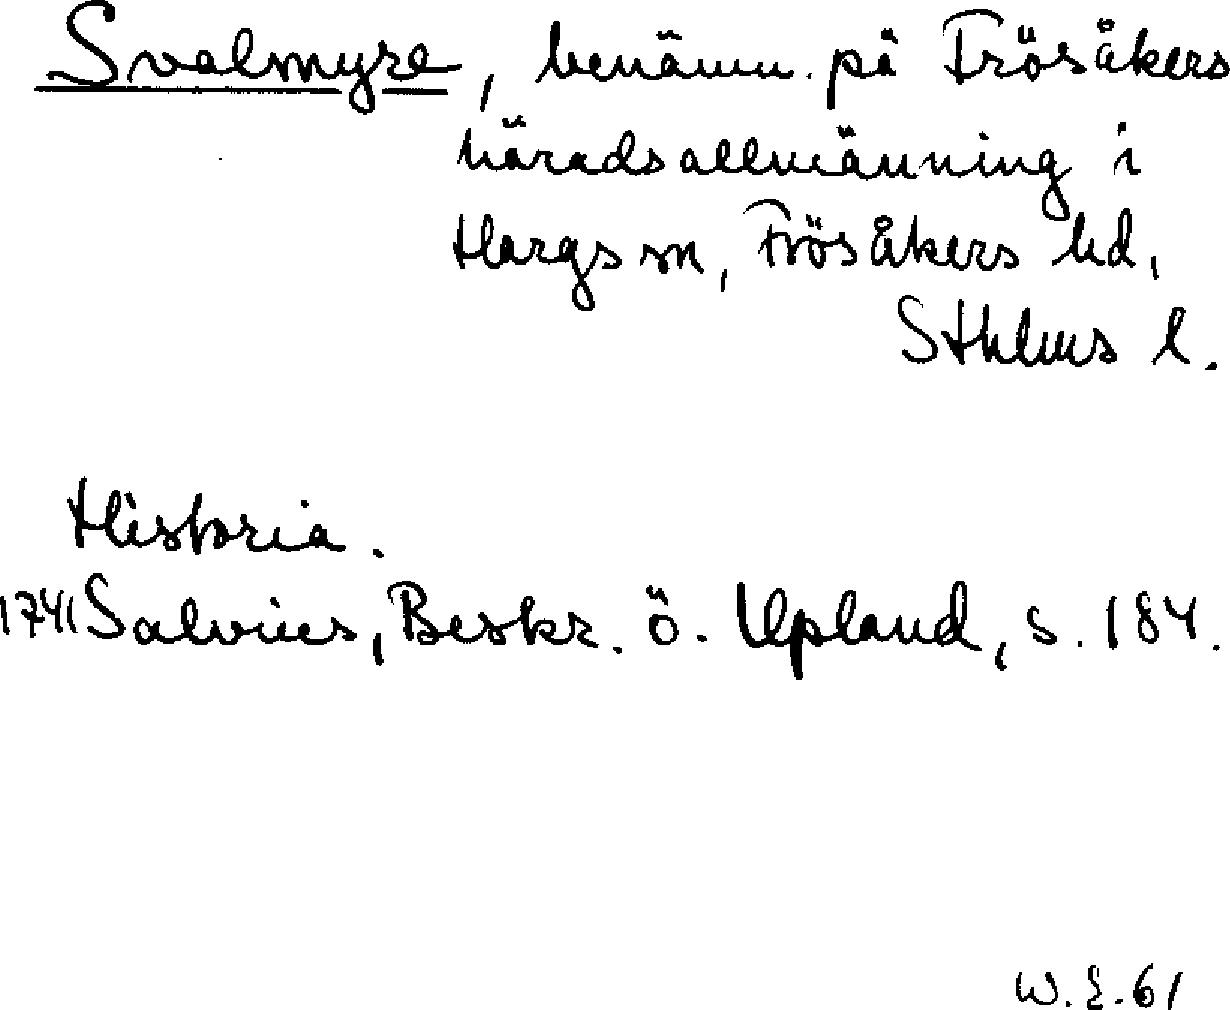 Svalmyre, benämn. på Frösåkers
häradsallmänning i
Hargs sn, Frösåkers hd,
Sthlms l.
Historia.
1741 Salvius, Beskr. ö. Upland, s. 184.
W. E. 61